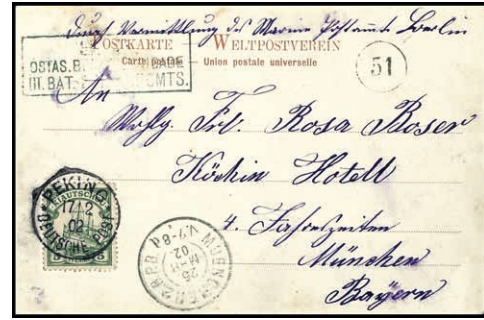 durch Vermittlung des Marine Postamts Berlin
POSTKARTE WELTPOSTVEREIN
Carte postale Union postale universelle
OSTAS.B
III.BAT.
51
An
Wohlg. Frl. Rosa Boser
Köchin Hotell
4 Jahreszeiten
München
Bayern
PEKING
17/2
02
DEUTSCHE POST
KIAUTSCHOU
5
MUENCHEN 2 B.P.
26
MAR
02
V.7-8